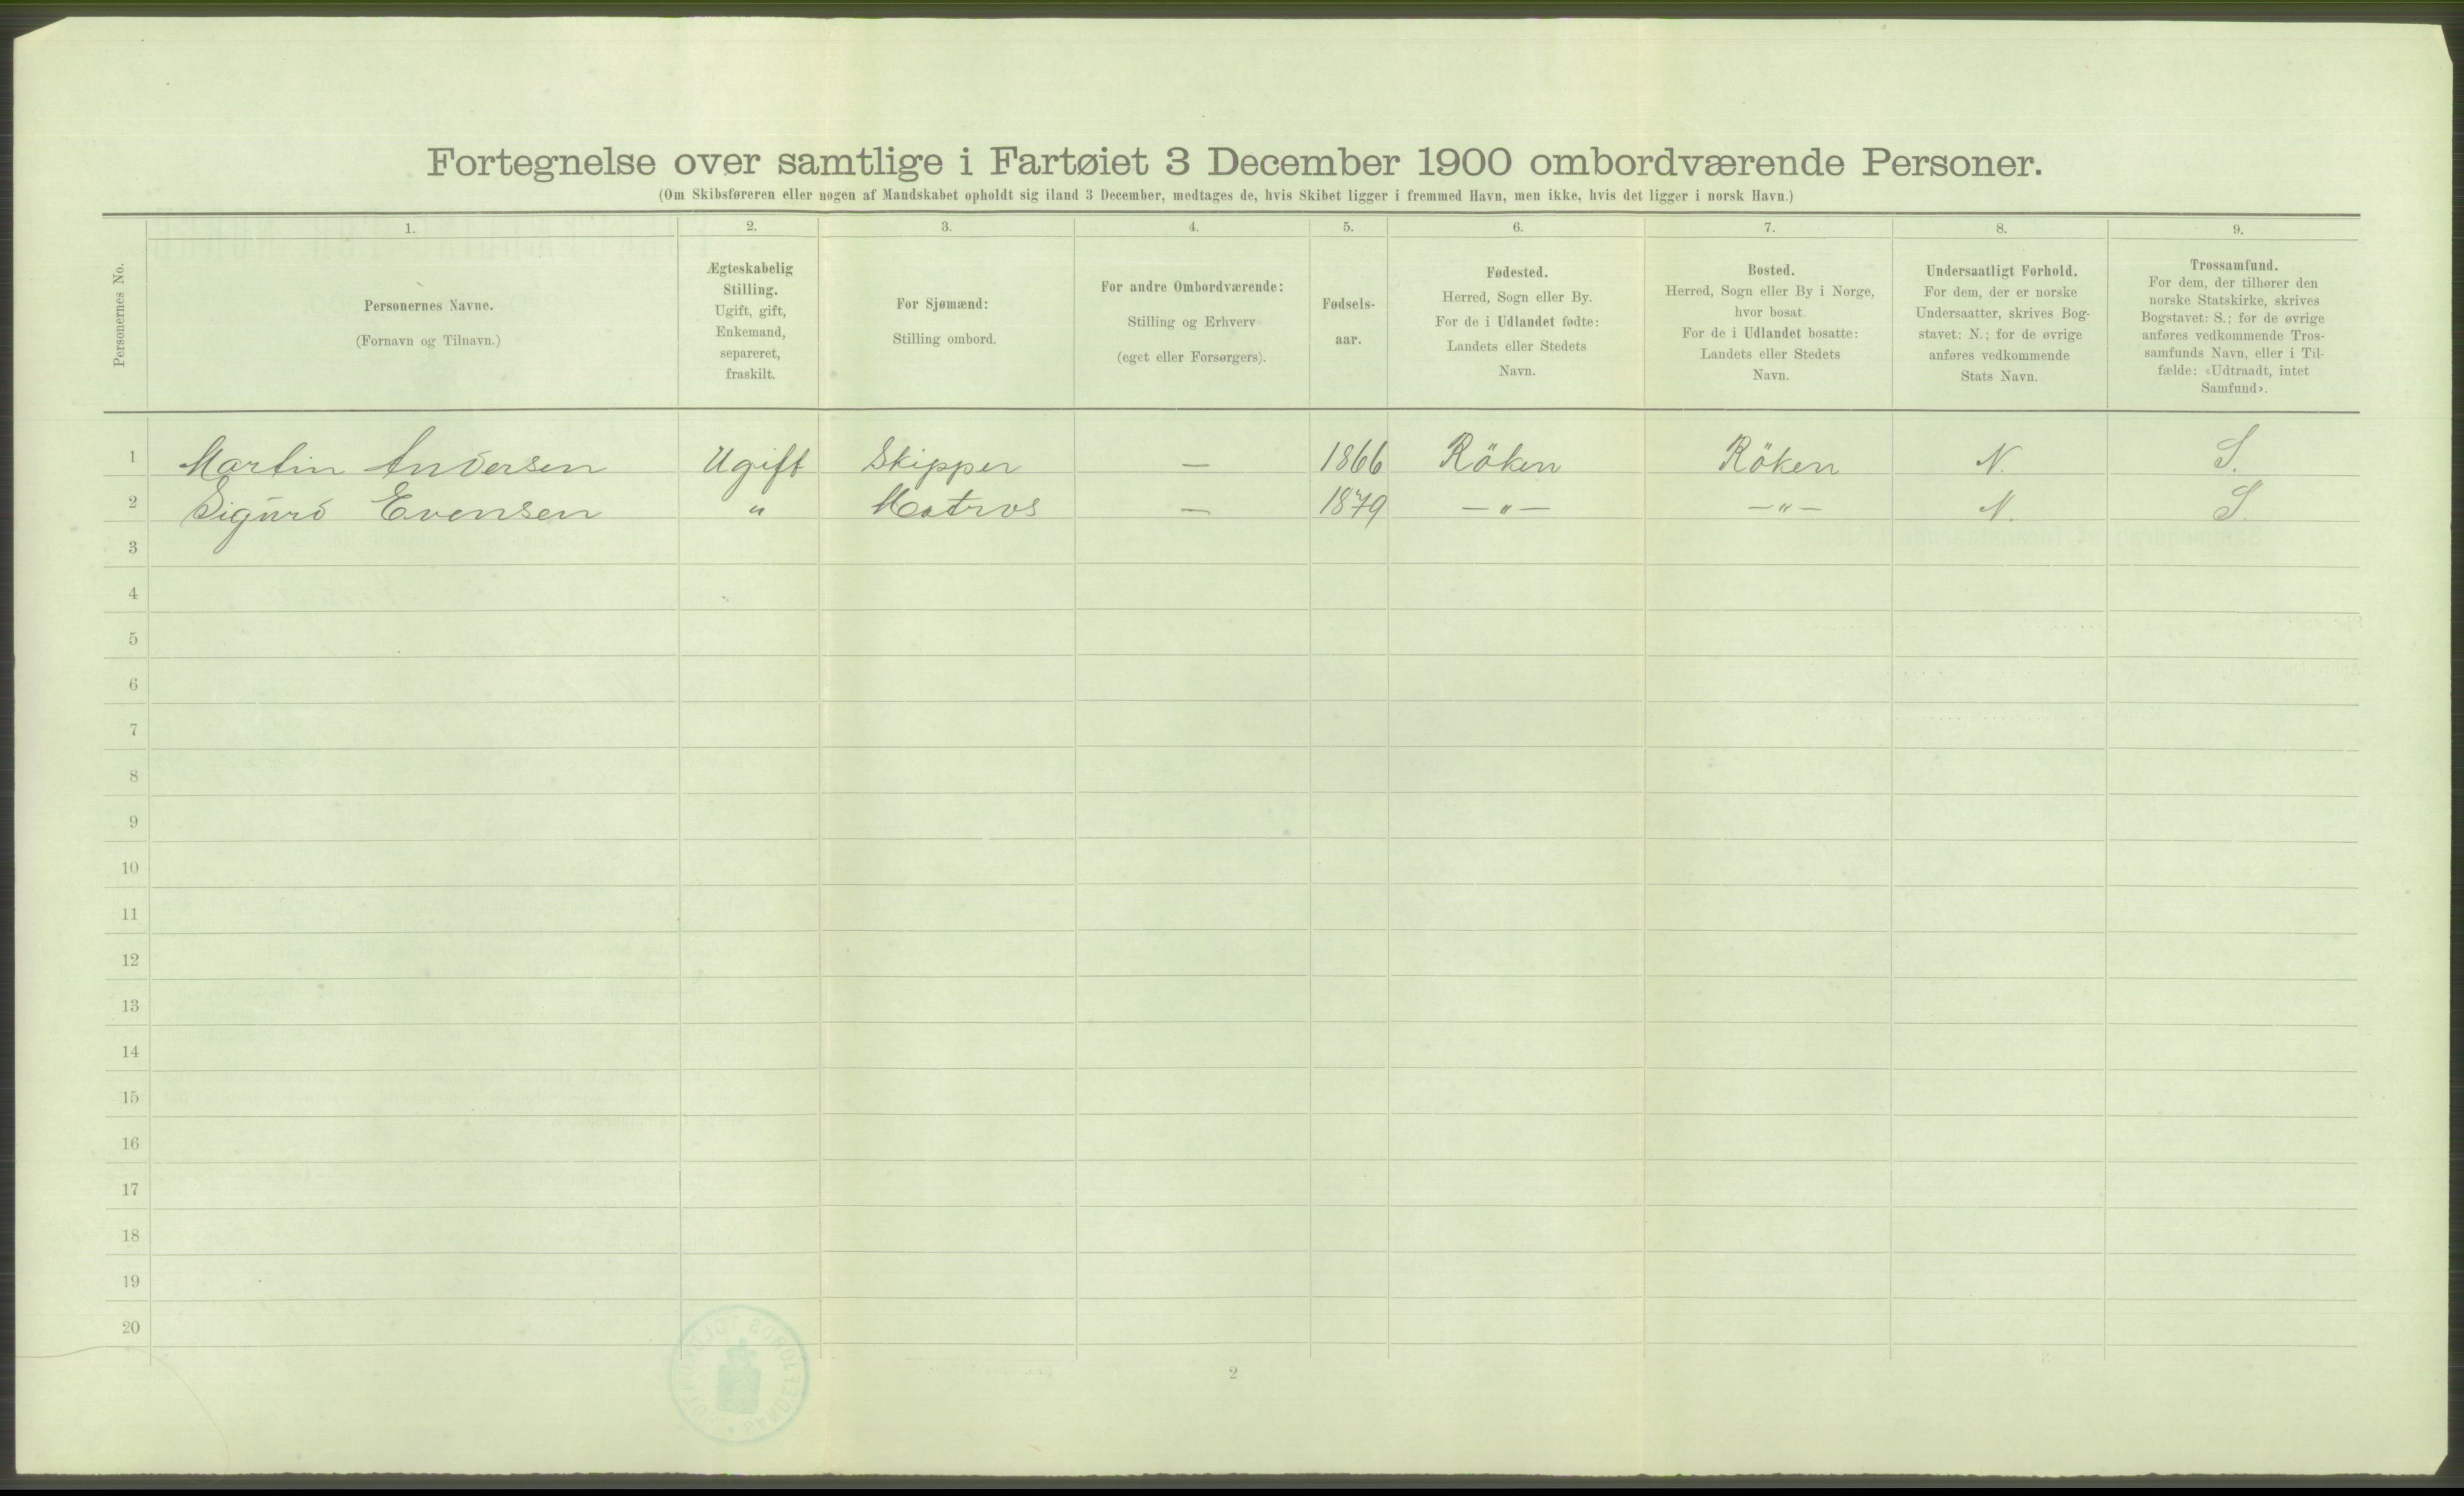 Fortegnelse over samtlige i Fartøiet 3 December 1900 ombordværende Personer.
(Om Skibsføreren eller nogen af Mandskabet opholdt sig iland 3 December, medtages de, hvis Skibet ligger i fremmed Havn, men ikke, hvis det ligger i norsk Havn.)
Personernes No.
1.
Personernes Navne.
(Fornavn og Tilnavn.)
2.
Ægteskabelig
Stilling.
Ugift, gift,
Enkemand,
separeret,
fraskilt.
3.
For Sjømænd:
Stilling ombord.
4.
For andre Ombordværende:
Stilling og Erhverv
(eget eller Forsørgers).
5.
Fødsels-
aar.
6.
Fødested.
Herred, Sogn eller By.
For de i Udlandet fødte:
Landets eller Stedets
Navn.
7.
Bosted.
Herred, Sogn eller By i Norge,
hvor bosat.
For de i Udlandet bosatte:
Landets eller Stedets
Navn.
8.
Undersaatligt Forhold.
For dem, der er norske
Undersaatter, skrives Bog-
stavet: N.; for de øvrige
anføres vedkommende
Stats Navn.
9.
Trossamfund.
For dem, der tilhører den
norske Statskirke, skrives
Bogstavet: S.; for de øvrige
anføres vedkommende Tros-
samfunds Navn, eller i Til-
fælde: «Udtraadt, intet
Samfund».
1 Martin Andersen Ugift Skipper — 1866 Röken Röken N. S.
2 Sigurd Evensen " Matros — 1879 —"— —"— N. S.
3
4
5
6
7
8
9
10
11
12
13
14
15
16
17
18
19
20
2